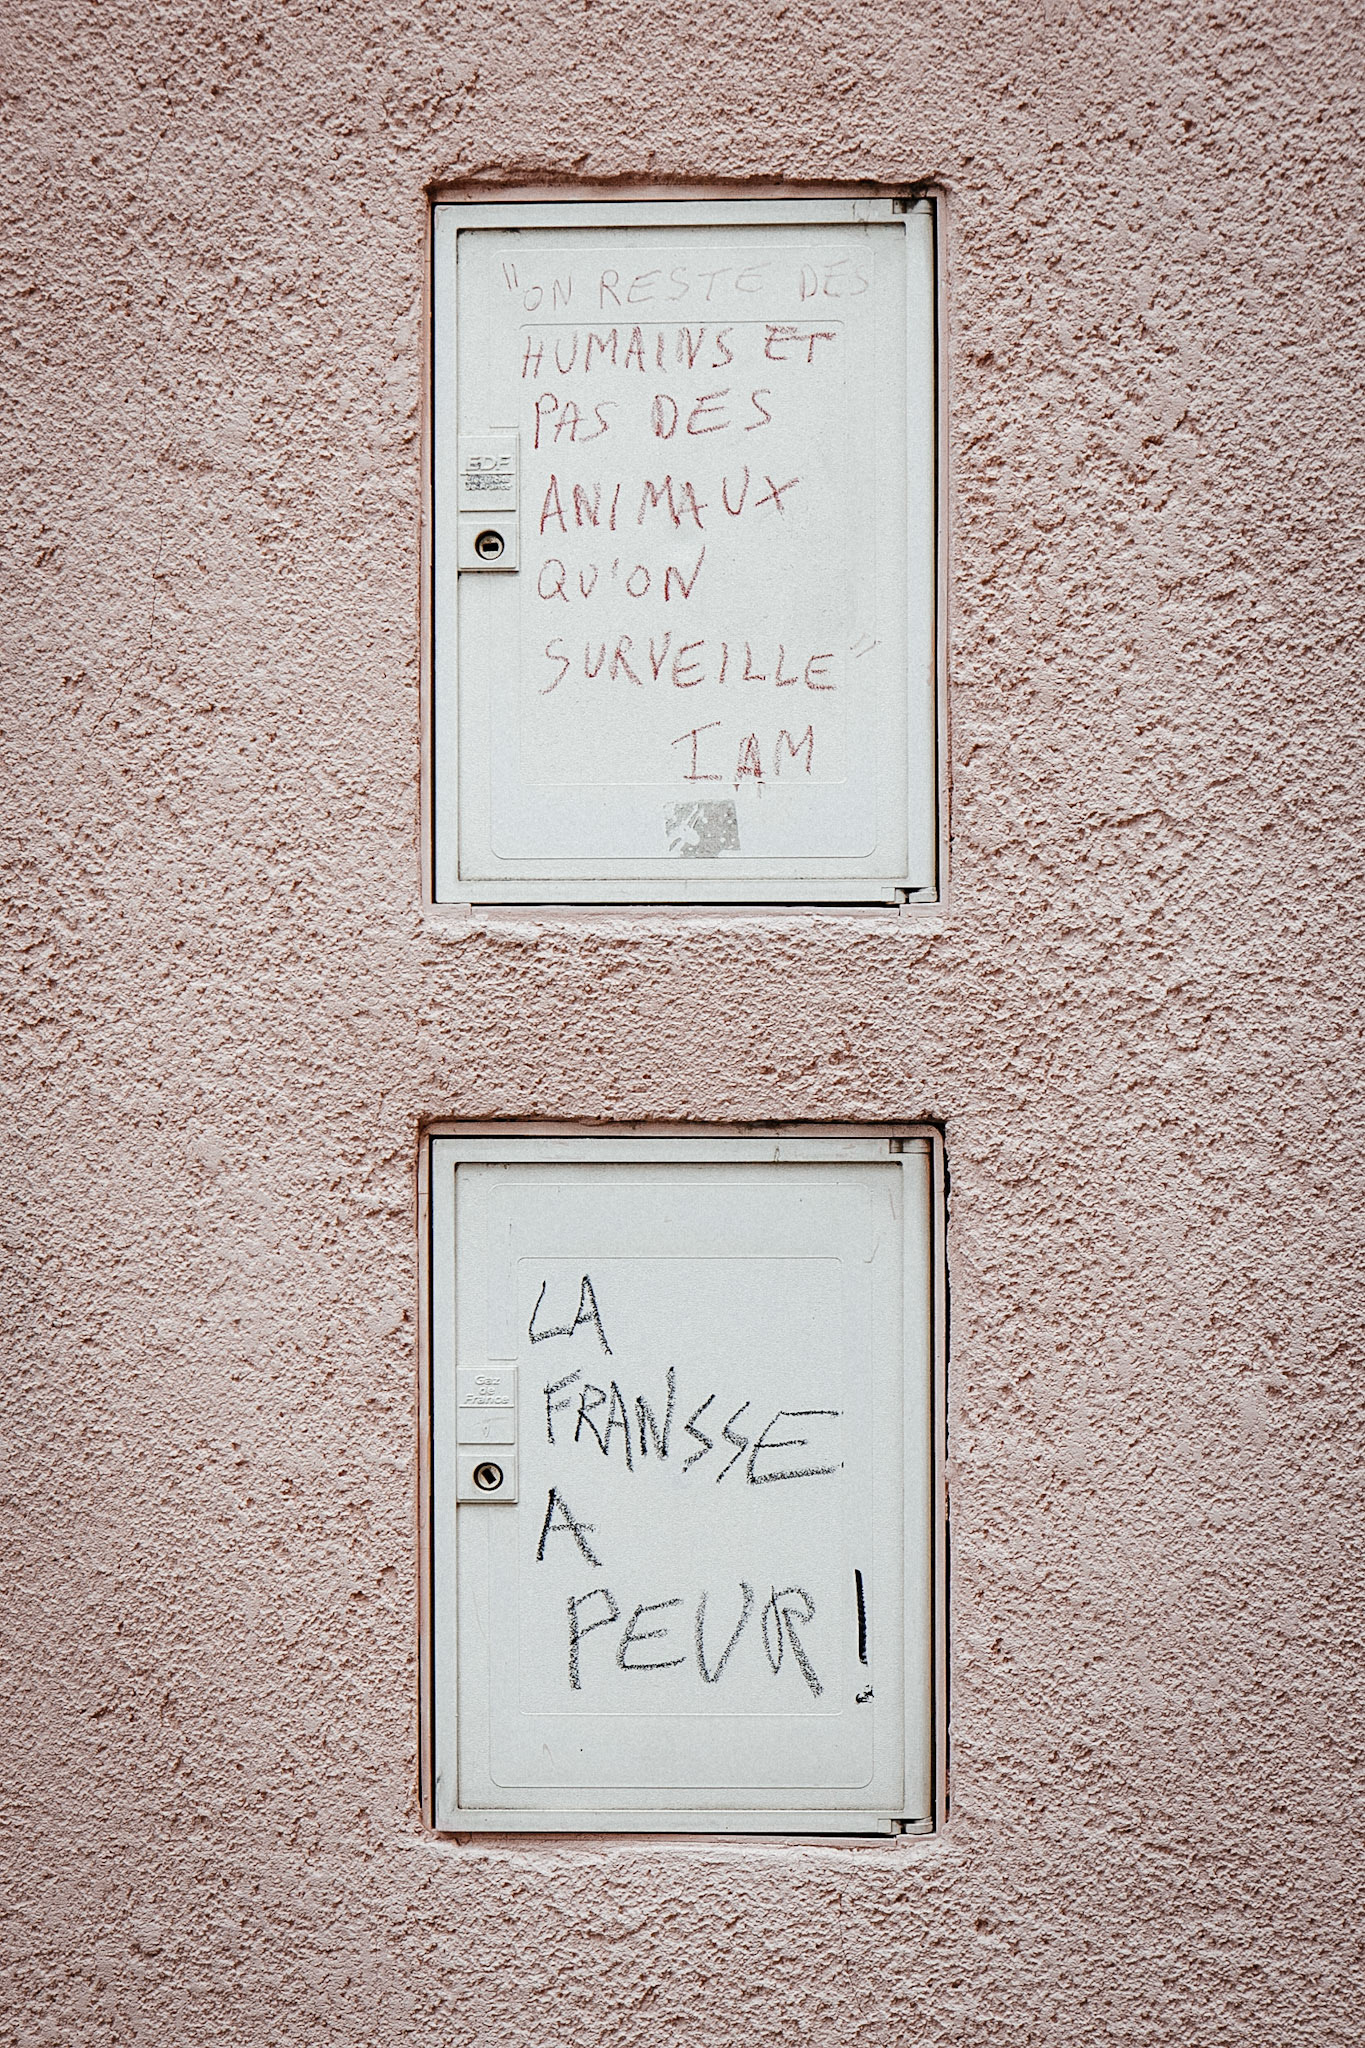 "ON RESTE DES
HUMAINS ET
PAS DES
ANIMAUX
QU'ON
SURVEILLE"
IAM
EDF
LA
FRANSSE
A
PEUR!
Gaz
de
France